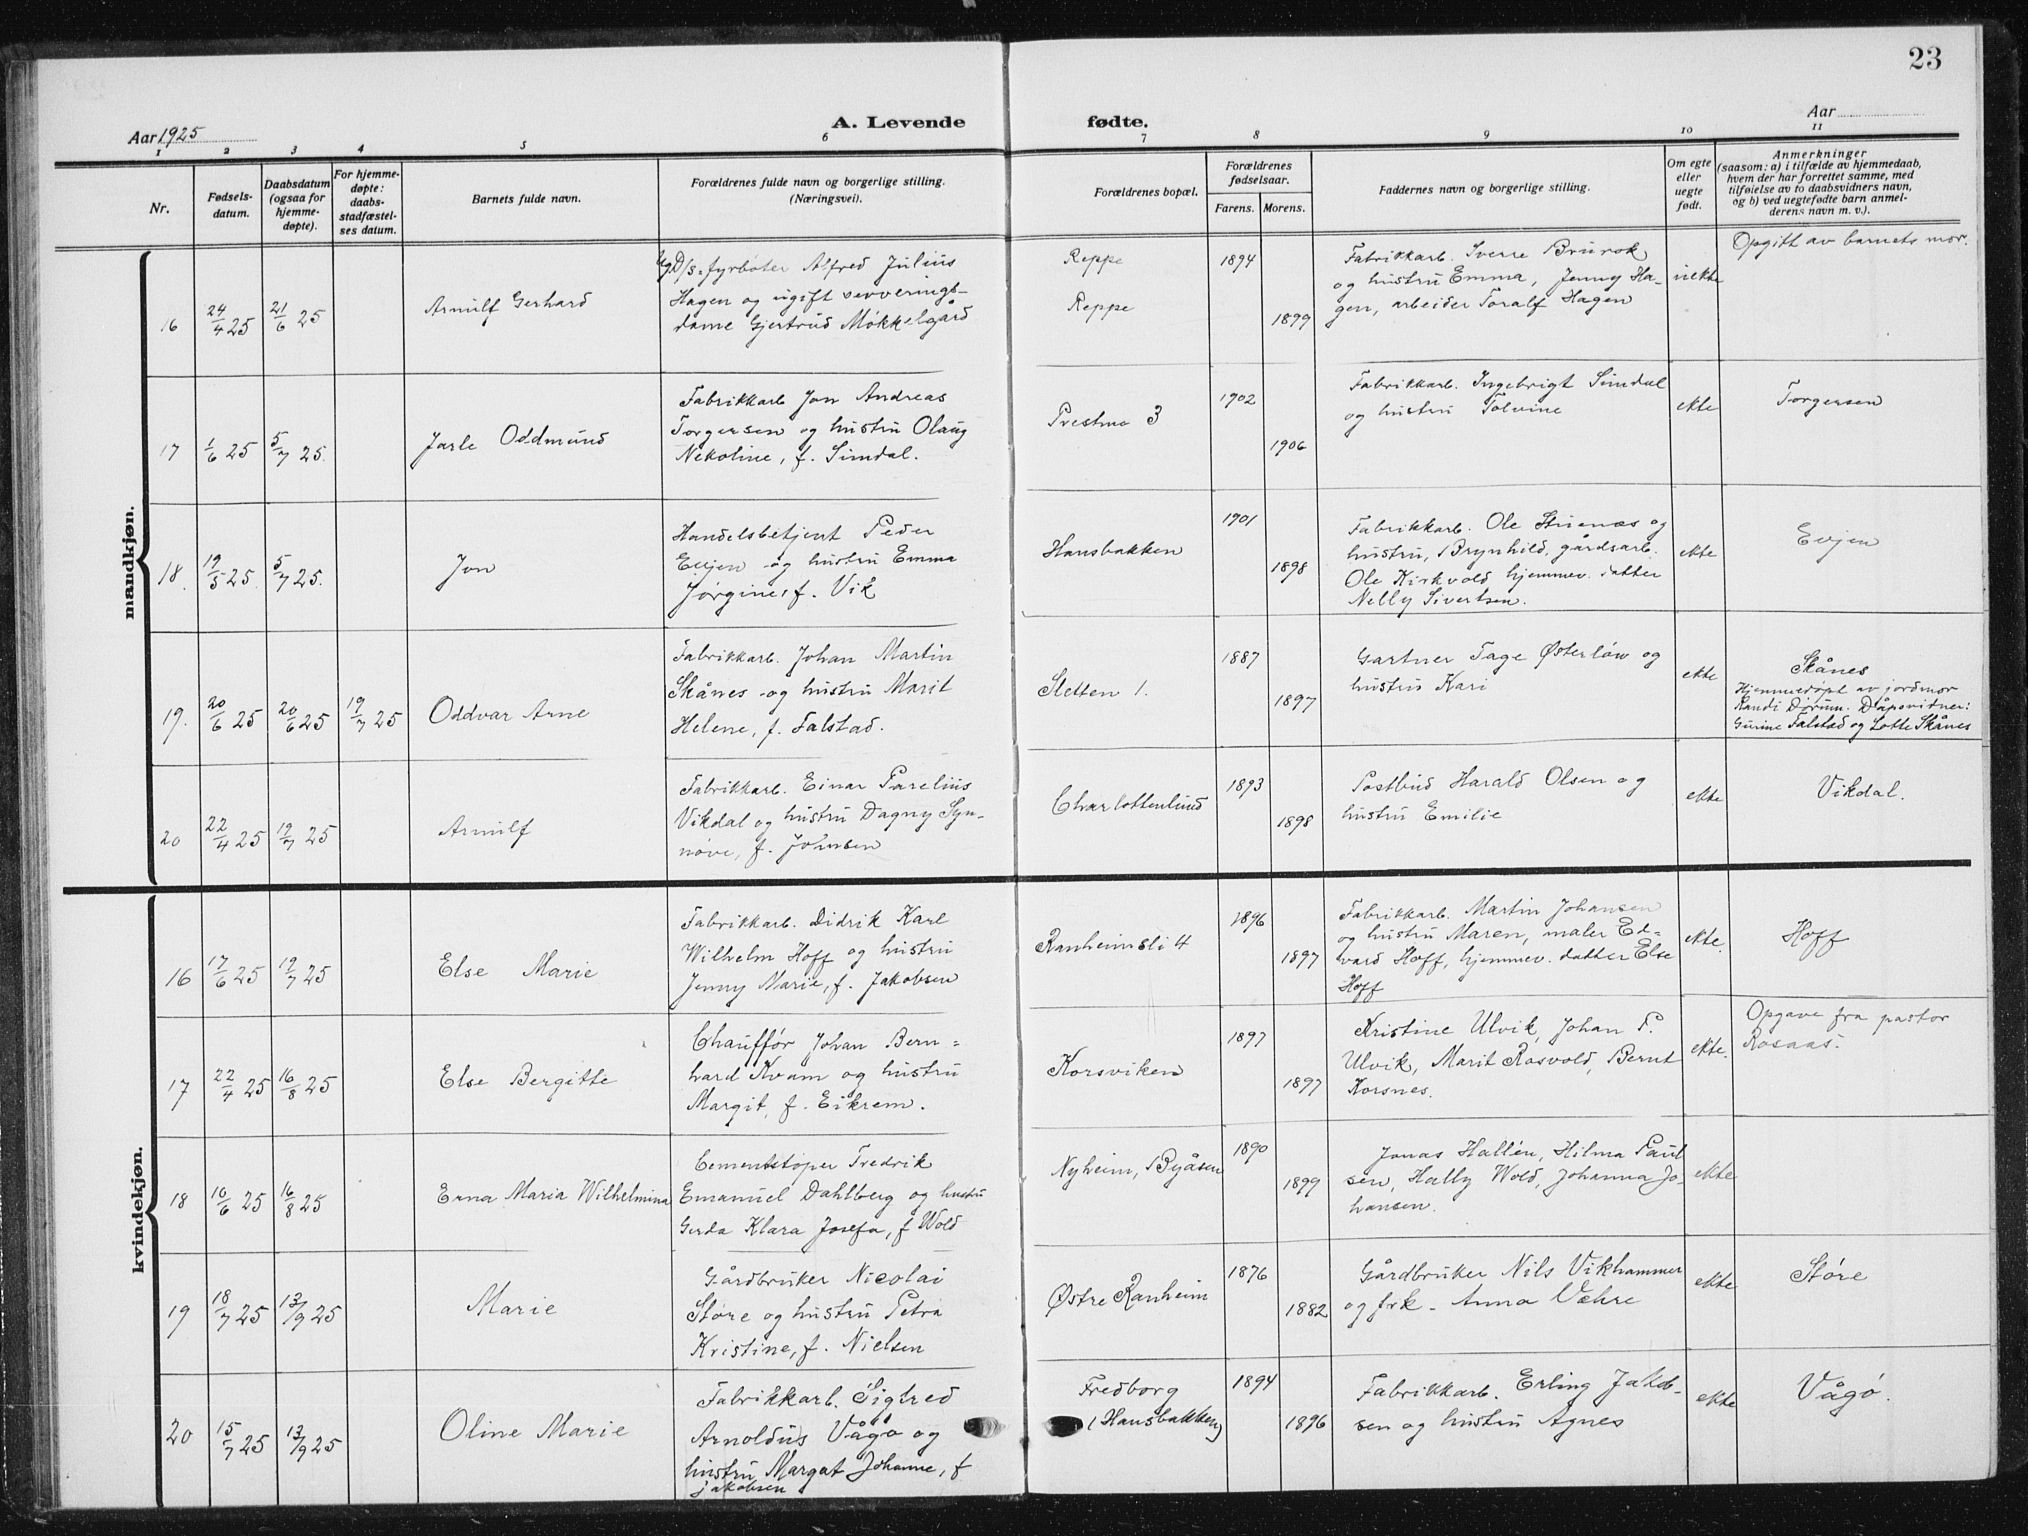 23
Aar 1925
A. Levende
fødte.
Aar
1 2 3 4 5 6 7 8 9 10 11
Nr.
Fødsels-
datum.
Daabsdatum
(ogsaa for
hjemme-
døpte).
For hjemme-
døpte:
daabs-
stadfæstel-
ses datum.
Barnets fulde navn.
Forældrenes fulde navn og borgerlige stilling.
(Næringsvei).
Forældrenes bopæl.
Forældrenes
fødselsaar.
Farens. Morens.
Faddernes navn og borgerlige stilling.
Om egte
eller
uegte
født.
Anmerkninger
(saasom: a) i tilfælde av hjemmedaab,
hvem der har forrettet samme, med
tilføielse av to daabsvidners navn,
og b) ved uegtefødte barn anmel-
derens navn m. v.).
mandkjøn.
16
24/4 25
21/6 25
Arnulf Gerhard
D/s. fyrbøter Alfred Julius
Hagen og ugift servverings-
dame Gjertrud Møkkelgård
Reppe
Reppe
1894
1899
Fabrikkarb. Sverre Brurok
og hustru Emma, Jenny Ha-
gen, arbeider Toralf Hagen
uekte
Opgitt av barnets mor.
17
1/6 25
5/7 25.
Jarle Oddmund
Fabrikkarb Jon Andreas
Torgersen og hustru Olaug
Nekoline, f. Simdal.
Prestmo 3
1902
1906
Fabrikkarb. Ingebrigt Simdal
og hustru Tolvine
ekte
Torgersen
18.
19/5 25.
5/7 25.
Jon
Handelsbetjent Peder
Evjen og hustru Emma
Jørgine, f. Vik
Hansbakken
1901
1898
Fabrikkarb. Ole Stuenæs og
hustru, Brynhild, gårdsarb.
Ole Kirkvold hjemmev. datter
Nelly Sivertsen.
ekte
Evjen
19.
20/6 25
20/6 25
19/7 25
Oddvar Arne
Fabrikkarb. Johan Martin
Skånes og hustru Marit
Helene, f. Falstad.
Sletten 1.
1887
1897
Gartner Tage Østerløw og
hustru Kari
ekte
Skånes
Hjemmedøpt av jordmor
Randi Dørum. Dåpsvidner:
Gurine Falstad og Lotte Skånes
20
22/4 25
19/7 25
Arnulf
Fabrikkarb. Einar Parelius
Vikdal og hustru Dagny Syn-
nøve, f. Johnsen
Charlottenlund
1893
1898
Postbud Harald Olsen og
hustru Emilie
ekte
Vikdal.
kvindekjøn.
16
17/6 25
19/7 25
Else Marie
Fabrikkarb. Didrik Karl
Wilhelm Hoff og hustru
Jenny Marie, f. Jakobsen
Ranheimsli 4
1896
1897
Fabrikkarb. Martin Johansen
og hustru Maren, maler Ed-
vard Hoff, hjemmev. datter Else
Hoff
ekte.
Hoff
17
22/4 25
16/8 25
Else Bergitte
Chauffør Johan Bern-
hard Kvam og hustru
Margit, f. Eikrem.
Korsviken
1897
1897
Kristine Ulvik, Johan P.
Ulvik, Marit Rosvold, Bernt
Korsnes.
ekte.
Opgave fra pastor
Rosaas.
18
10/6 25
16/8 25
Erna Maria Wilhelmina
Cementstøper Fredrik
Emanuel Dahlberg og hustru
Gerda Klara Josefa, f Wold
Nyheim, Byåsen
1890
1899
Jonas Hallén, Hilma Paul
sen, Hally Wold, Johanna Jo-
hansen.
ekte
19
18/7 25
13/9 25
Marie
Gårdbruker Nicolai
Støre og hustru Petra
Kristine, f. Nielsen
Østre Ranheim
1876
1882
Gårdbruker Nils Vikhammer
og frk. Anna Væhre
ekte
Støre
20
15/7 25
13/9 25
Oline Marie
Fabrikkarb. Sigfred
Arnoldus Vågø og
hustru Margat Johanne, f
Jakobsen
Fredborg
(Hansbakken)
1894
1896
Fabrikkarb. Erling Jakob-
sen og hustru Agnes
ekte
Vågø.